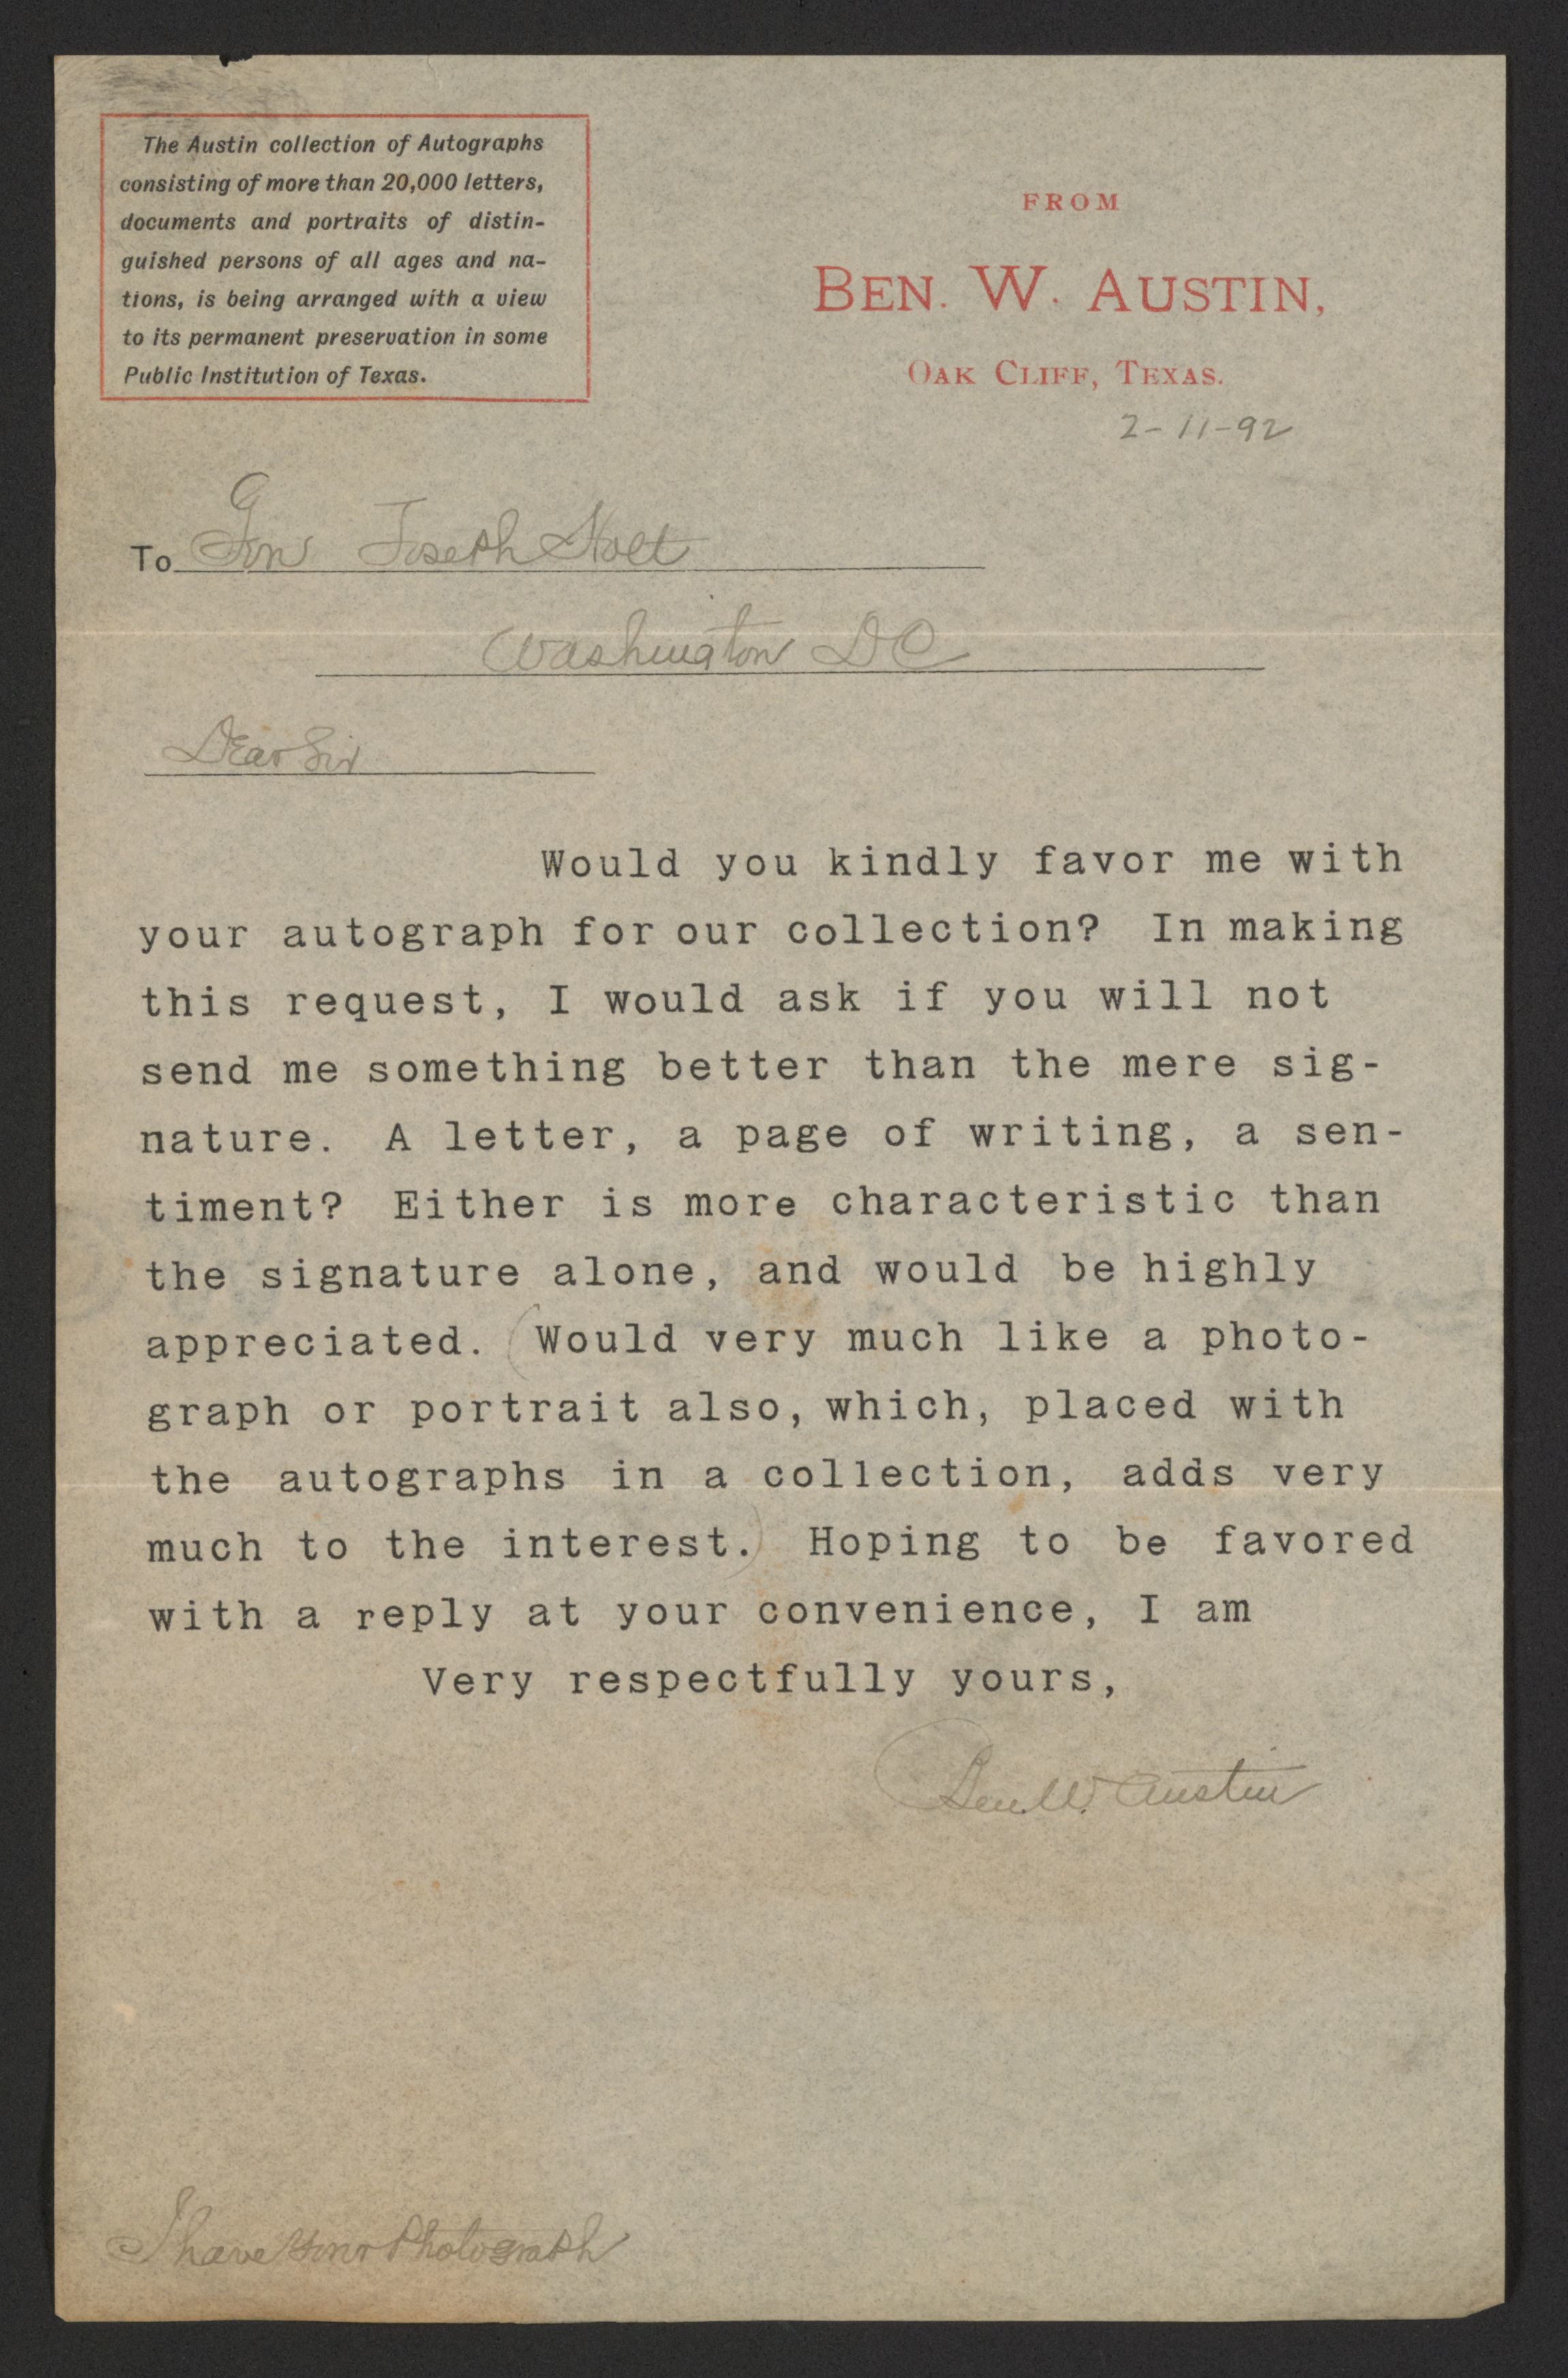 The Austin collection of Autographs
consisting of more than 20,000 letters,
documents and portraits of distin-
guished persons of all ages and na-
tions, is being arranged with a view
to its permanent preservation in some
Public Institution of Texas.
FROM
BEN. W. AUSTIN,
OAK CLIFF, TEXAS.
2-11-92
To Gen Joseph Holt
Washington DC
Dear Sir
Would you kindly favor me with
your autograph for our collection? In making
this request, I would ask if you will not
send me something better than the mere sig-
nature. A letter, a page of writing, a sen-
timent? Either is more characteristic than
the signature alone, and would be highly
appreciated. (Would very much like a photo-
graph or portrait also, which, placed with
the autographs in a collection, adds very
much to the interest.) Hoping to be favored
with a reply at your convenience, I am
Very respectfully yours,
Ben. W. Austin
I have your Photograph